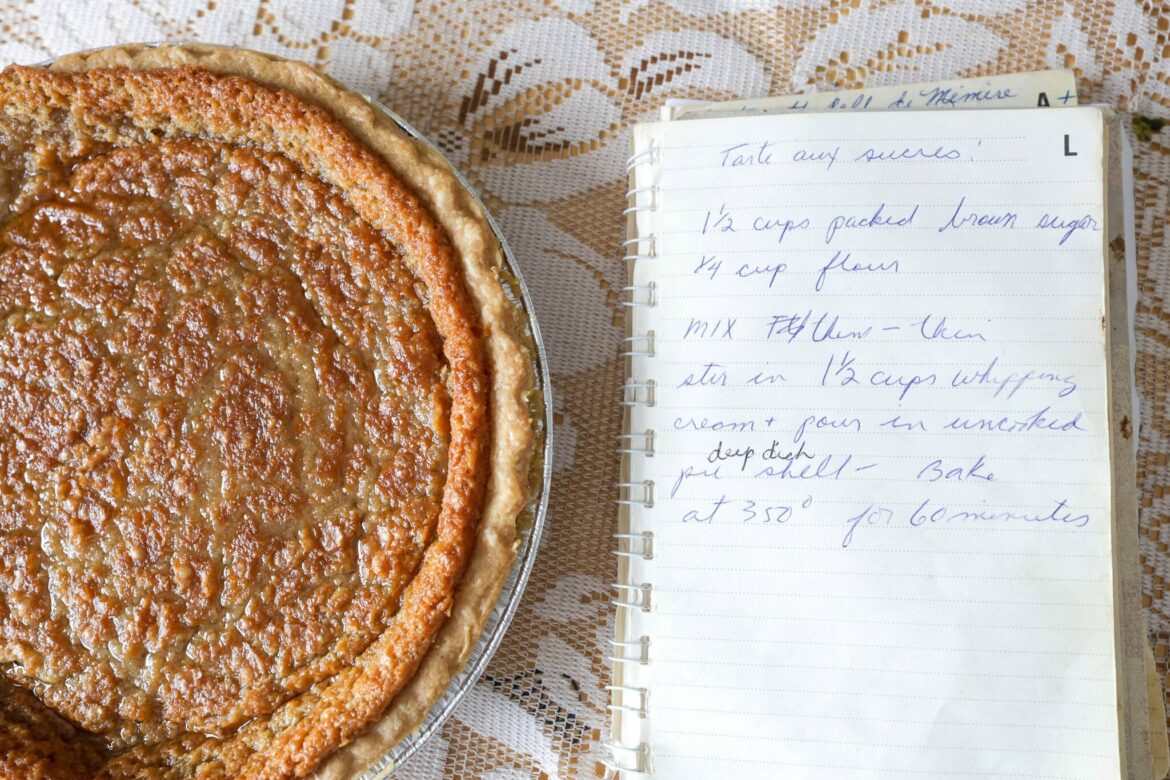 de Mémère
A+
L
Tarte aux sucres!
1 1/2 cups packed brown sugar
1/4 cup flour
MIX then - then
stir in 1 1/2 cups whipping
cream + pour in uncooked
deep dish
pie shell - Bake
at 350° for 60 minutes